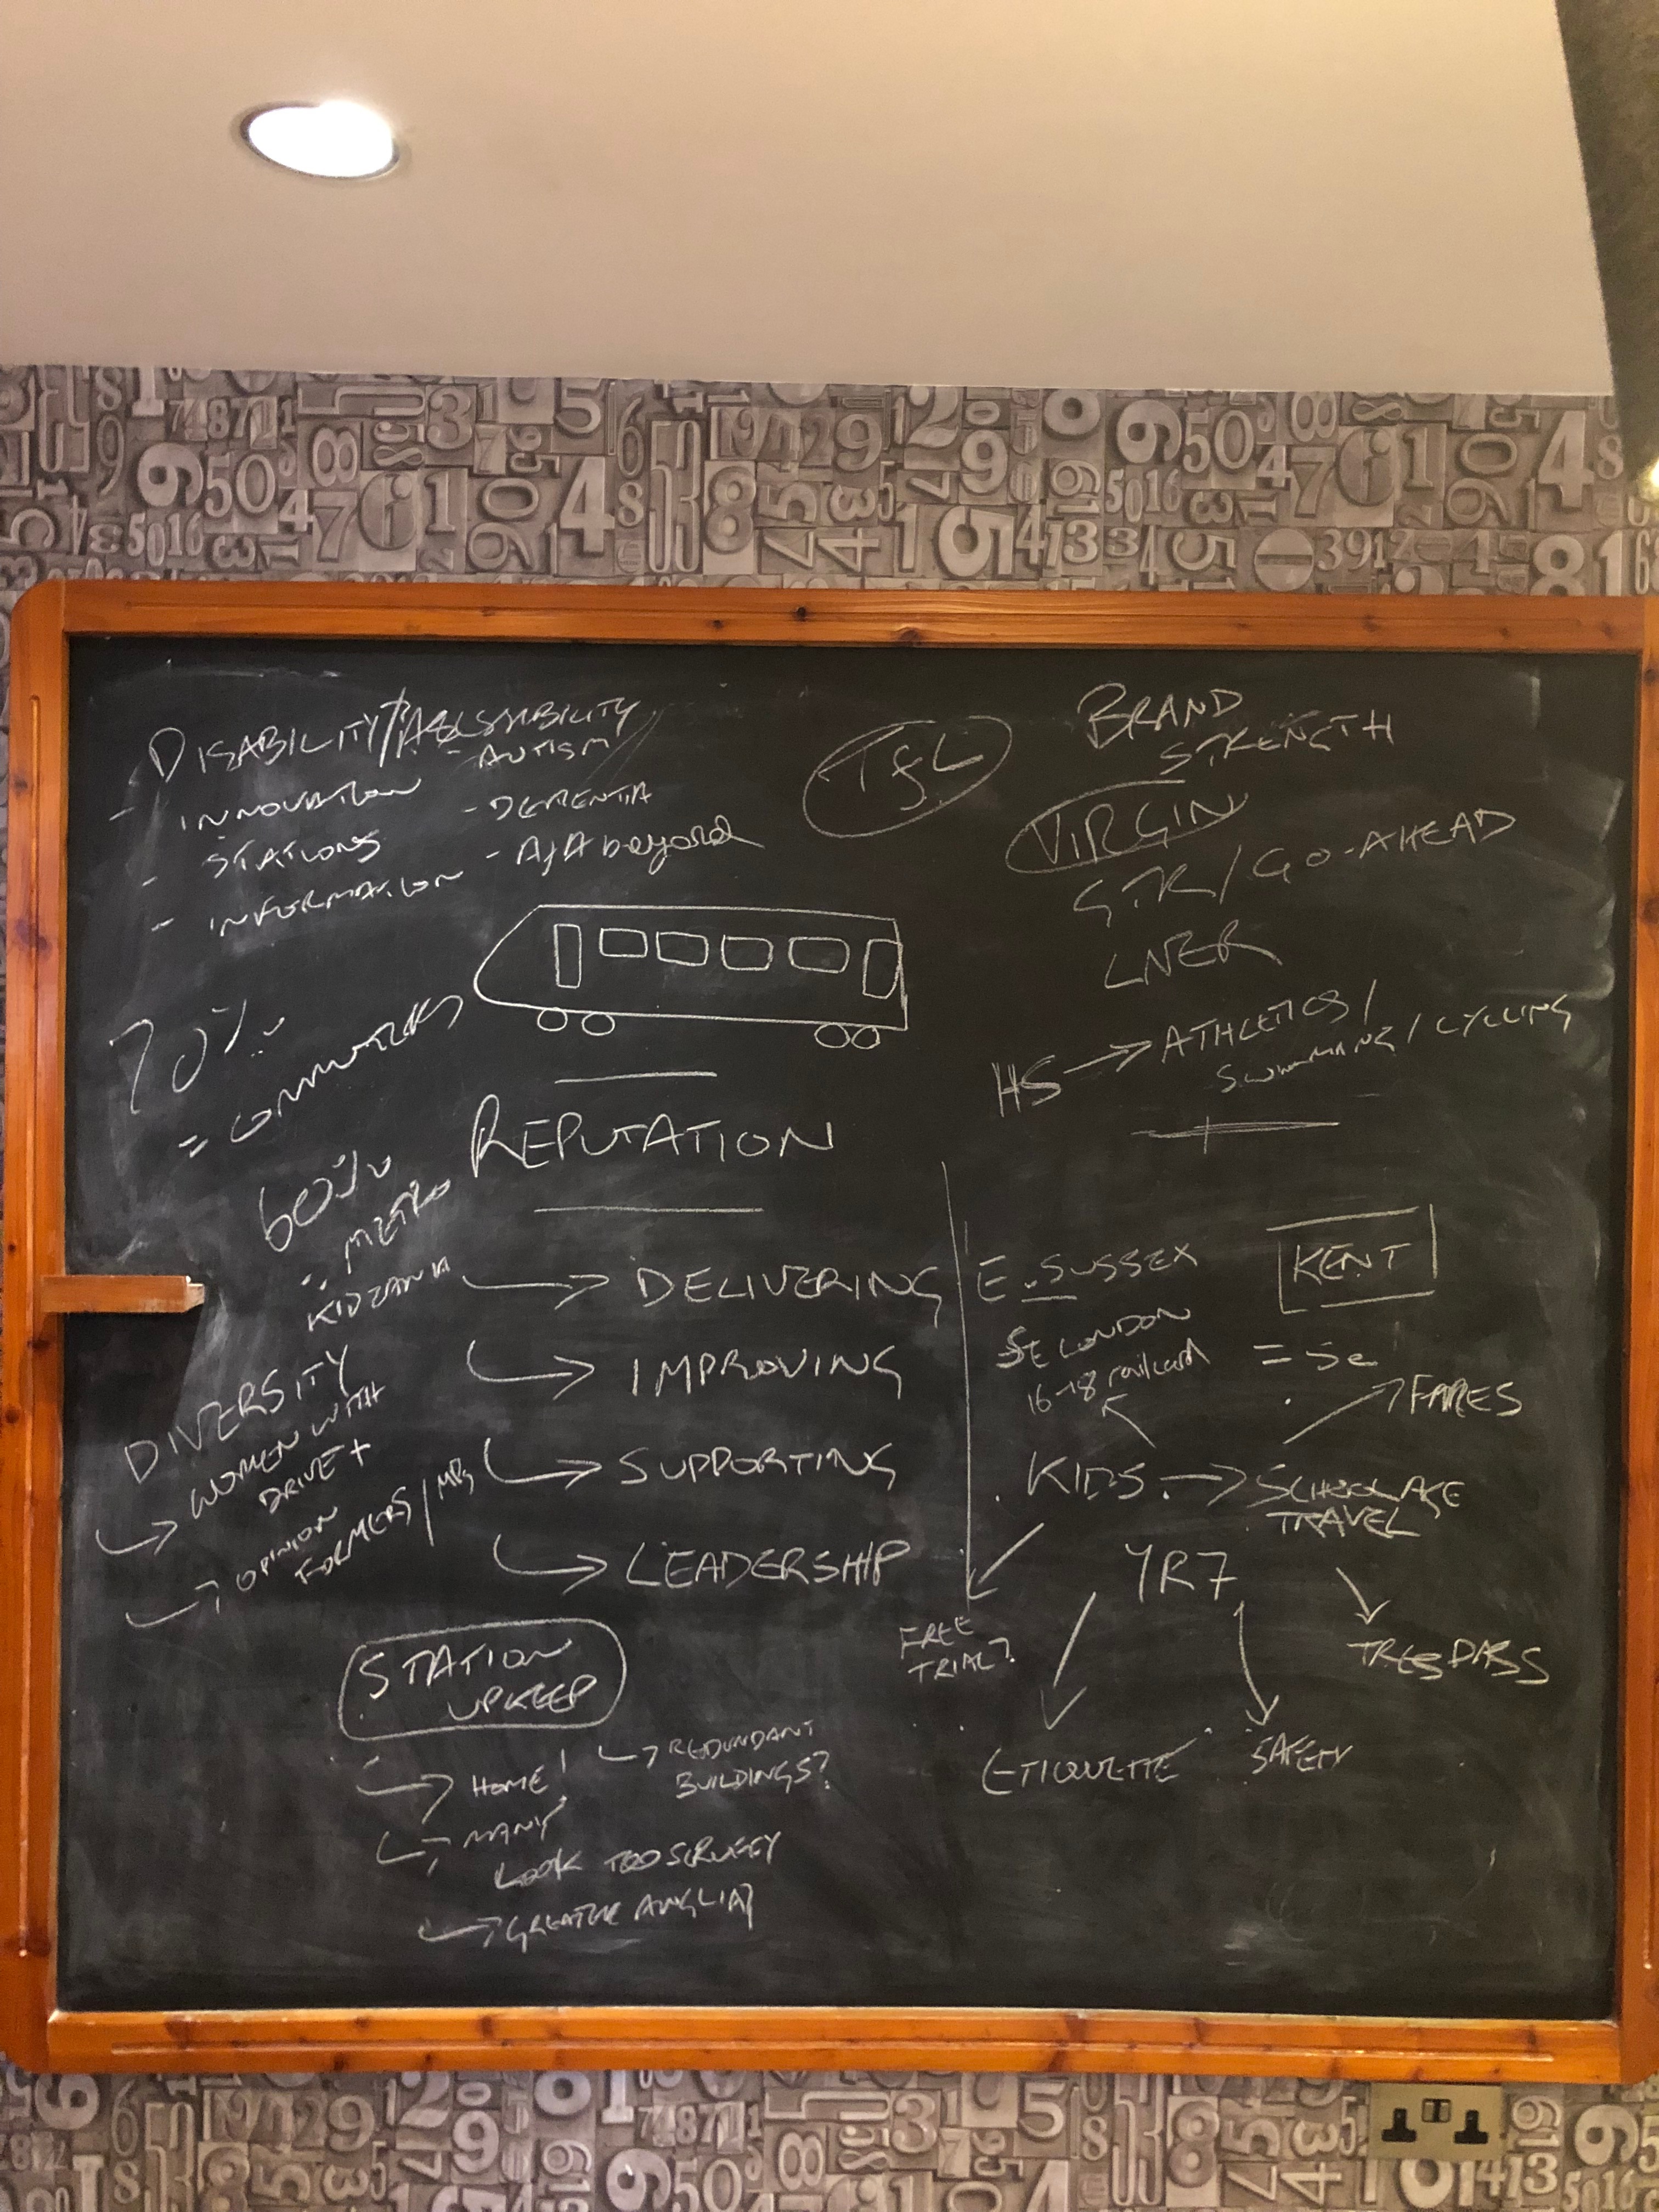 DISABILITY/ACCESSIBILITY
- INNOVATION
- STATIONS
- INFORMATION
- AUTISM
- DEMENTIA
- beyond
TfL
BRAND
STRENGTH
VIRGIN
GTR/GO-AHEAD
LNER
HS → ATHLETICS/
SWIMMING/CYCLING
70%
= COMMUTERS
60%
METRO
KIDZANIA
REPUTATION
→ DELIVERING
→ IMPROVING
→ SUPPORTING
→ LEADERSHIP
DIVERSITY
→ WOMEN WITH
DRIVE +
→ OPINION
FORMERS/MPs
STATION
UPKEEP
→ HOME
→ REDUNDANT
BUILDINGS?
→ MANY
LOOK TOO SCRUFFY
→ GREATER ANGLIA
E. SUSSEX
SE LONDON
16-18 railcard
KENT
= SE
FARES
KIDS → SCHOOL AGE
TRAVEL
YR7
FREE
TRIAL?
TRESPASS
ETIQUETTE
SAFETY